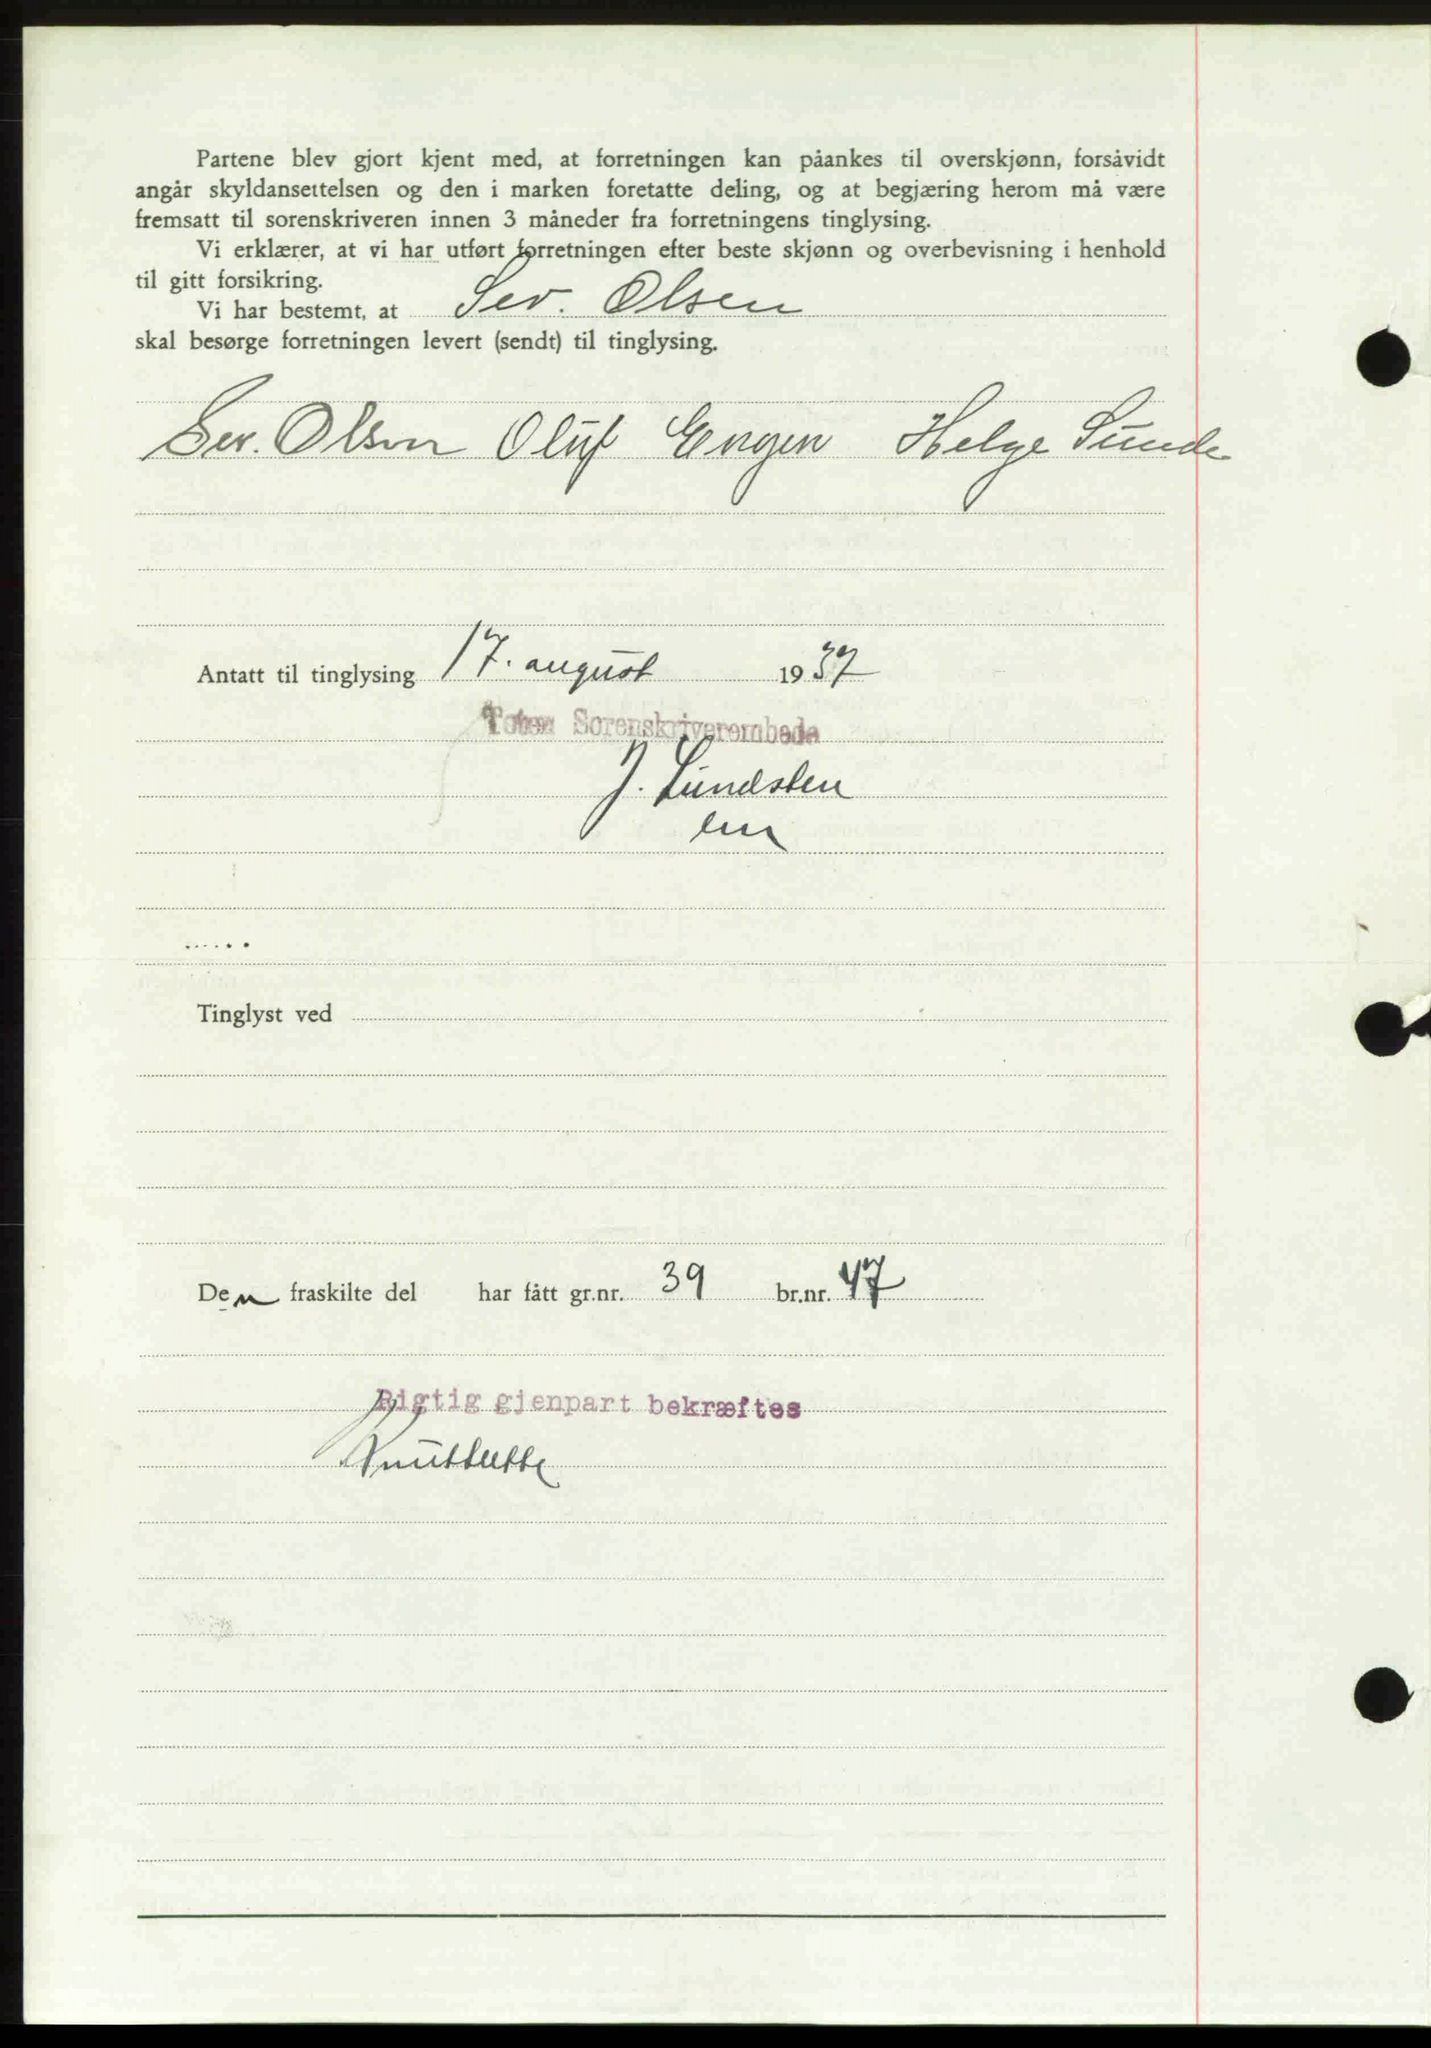 Partene blev gjort kjent med, at forretningen kan påankes til overskjønn, forsåvidt
angår skyldansettelsen og den i marken foretatte deling, og at begjæring herom må være
fremsatt til sorenskriveren innen 3 måneder fra forretningens tinglysing.
Vi erklærer, at vi har utført forretningen efter beste skjønn og overbevisning i henhold
til gitt forsikring.
Vi har bestemt, at Sev. Olsen
skal besørge forretningen levert (sendt) til tinglysing.
Sev. Olsen Oluf Engen Helge Sunde
Antatt til tinglysing 17. august 1937
Toten Sorenskriverembede
J. Lundsten
Tinglyst ved
Den fraskilte del har fått gr.nr. 39 br.nr. 47
Rigtig gjenpart bekræftes